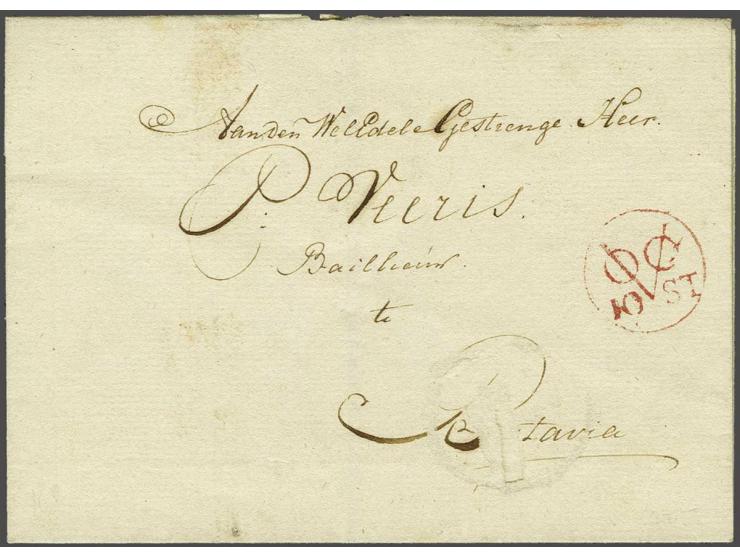 Aan den WelEdele Gestrenge Heer.
P: Veeris.
Baillieuw.
te
Batavia
VOC
10 ST